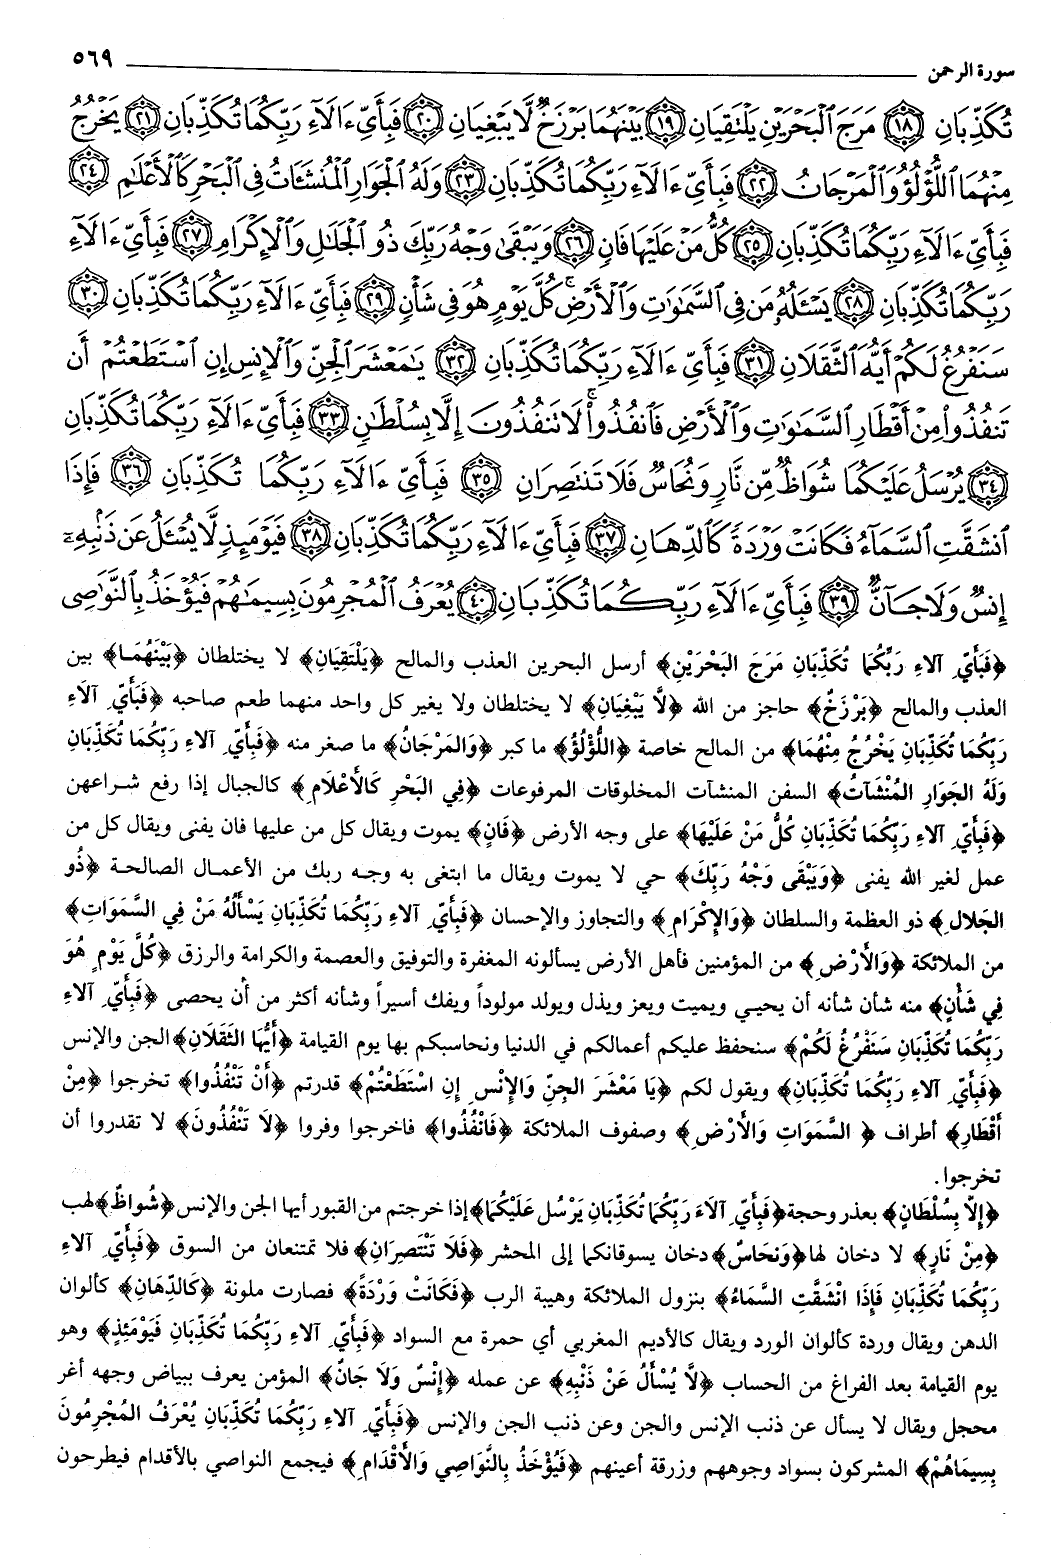 سورة الرحمن ٥٦٩
تُكَذِّبَانِ ﴿١٨﴾ مَرَجَ ٱلْبَحْرَيْنِ يَلْتَقِيَانِ ﴿١٩﴾ بَيْنَهُمَا بَرْزَخٌ لَّا يَبْغِيَانِ ﴿٢٠﴾ فَبِأَيِّ ءَالَآءِ رَبِّكُمَا تُكَذِّبَانِ ﴿٢١﴾ يَخْرُجُ
مِنْهُمَا ٱللُّؤْلُؤُ وَٱلْمَرْجَانُ ﴿٢٢﴾ فَبِأَيِّ ءَالَآءِ رَبِّكُمَا تُكَذِّبَانِ ﴿٢٣﴾ وَلَهُ ٱلْجَوَارِ ٱلْمُنشَئَاتُ فِي ٱلْبَحْرِ كَٱلْأَعْلَٰمِ ﴿٢٤﴾
فَبِأَيِّ ءَالَآءِ رَبِّكُمَا تُكَذِّبَانِ ﴿٢٥﴾ كُلُّ مَنْ عَلَيْهَا فَانٍ ﴿٢٦﴾ وَيَبْقَىٰ وَجْهُ رَبِّكَ ذُو ٱلْجَلَٰلِ وَٱلْإِكْرَامِ ﴿٢٧﴾ فَبِأَيِّ ءَالَآءِ
رَبِّكُمَا تُكَذِّبَانِ ﴿٢٨﴾ يَسْـَٔلُهُۥ مَن فِي ٱلسَّمَٰوَٰتِ وَٱلْأَرْضِ ۚ كُلَّ يَوْمٍ هُوَ فِي شَأْنٍ ﴿٢٩﴾ فَبِأَيِّ ءَالَآءِ رَبِّكُمَا تُكَذِّبَانِ ﴿٣٠﴾
سَنَفْرُغُ لَكُمْ أَيُّهَ ٱلثَّقَلَانِ ﴿٣١﴾ فَبِأَيِّ ءَالَآءِ رَبِّكُمَا تُكَذِّبَانِ ﴿٣٢﴾ يَٰمَعْشَرَ ٱلْجِنِّ وَٱلْإِنسِ إِنِ ٱسْتَطَعْتُمْ أَن
تَنفُذُوا۟ مِنْ أَقْطَارِ ٱلسَّمَٰوَٰتِ وَٱلْأَرْضِ فَٱنفُذُوا۟ ۚ لَا تَنفُذُونَ إِلَّا بِسُلْطَٰنٍ ﴿٣٣﴾ فَبِأَيِّ ءَالَآءِ رَبِّكُمَا تُكَذِّبَانِ
﴿٣٤﴾ يُرْسَلُ عَلَيْكُمَا شُوَاظٌ مِّن نَّارٍ وَنُحَاسٌ فَلَا تَنتَصِرَانِ ﴿٣٥﴾ فَبِأَيِّ ءَالَآءِ رَبِّكُمَا تُكَذِّبَانِ ﴿٣٦﴾ فَإِذَا
ٱنشَقَّتِ ٱلسَّمَآءُ فَكَانَتْ وَرْدَةً كَٱلدِّهَانِ ﴿٣٧﴾ فَبِأَيِّ ءَالَآءِ رَبِّكُمَا تُكَذِّبَانِ ﴿٣٨﴾ فَيَوْمَئِذٍ لَّا يُسْـَٔلُ عَن ذَنۢبِهِۦٓ
إِنسٌ وَلَا جَآنٌّ ﴿٣٩﴾ فَبِأَيِّ ءَالَآءِ رَبِّكُمَا تُكَذِّبَانِ ﴿٤٠﴾ يُعْرَفُ ٱلْمُجْرِمُونَ بِسِيمَٰهُمْ فَيُؤْخَذُ بِٱلنَّوَٰصِي
﴿فَبِأَيِّ آلاءِ رَبِّكُمَا تُكَذِّبَانِ مَرَجَ البَحْرَيْنِ﴾ أرسل البحرين العذب والمالح ﴿يَلْتَقِيَانِ﴾ لا يختلطان ﴿بَيْنَهُمَا﴾ بين
العذب والمالح ﴿بَرْزَخٌ﴾ حاجز من الله ﴿لَّا يَبْغِيَانِ﴾ لا يختلطان ولا يغير كل واحد منهما طعم صاحبه ﴿فَبَأَيِّ آلَاءِ
رَبِّكُمَا تُكَذِّبَانِ يَخْرُجُ مِنْهُمَا﴾ من المالح خاصة ﴿اللُّؤْلُؤُ﴾ ما كبر ﴿وَالمَرْجَانُ﴾ ما صغر منه ﴿فَبِأَيِّ آلاءِ رَبِّكُمَا تُكَذِّبَانِ
وَلَهُ الجَوَارِ المُنْشَآتُ﴾ السفن المنشآت المخلوقات المرفوعات ﴿فِي البَحْرِ كَالأَعْلَامِ﴾ كالجبال إذا رفع شراعهن
﴿فَبِأَيِّ آلاءِ رَبِّكُمَا تُكَذِّبَانِ كُلُّ مَنْ عَلَيْهَا﴾ على وجه الأرض ﴿فَانٍ﴾ يموت ويقال كل من عليها فان يفنى ويقال كل من
عمل لغير الله يفنى ﴿وَيَبْقَى وَجْهُ رَبِّكَ﴾ حي لا يموت ويقال ما ابتغى به وجه ربك من الأعمال الصالحة ﴿ذُو
الجَلال﴾ ذو العظمة والسلطان ﴿وَالإِكْرَامِ﴾ والتجاوز والإحسان ﴿فَبِأَيِّ آلاءِ رَبِّكُمَا تُكَذِّبَانِ يَسْأَلُهُ مَنْ فِي السَّمَوَاتِ﴾
من الملائكة ﴿وَالأَرْضِ﴾ من المؤمنين فأهل الأرض يسألونه المغفرة والتوفيق والعصمة والكرامة والرزق ﴿كُلَّ يَوْمٍ هُوَ
فِي شَأْنٍ﴾ منه شأن شأنه أن يحيي ويميت ويعز ويذل ويولد مولوداً ويفك أسيراً وشأنه أكثر من أن يحصى ﴿فَبِأَيِّ آلاءِ
رَبِّكُمَا تُكَذِّبَانِ سَنَفْرُغُ لَكُمْ﴾ سنحفظ عليكم أعمالكم في الدنيا ونحاسبكم بها يوم القيامة ﴿أَيُّهَا الثَقَلَانِ﴾ الجن والإنس
﴿فَبِأَيِّ آلاءِ رَبِّكُمَا تُكَذِّبَانِ﴾ ويقول لكم ﴿يَا مَعْشَرَ الجِنِّ وَالإِنْسِ إِن اسْتَطَعْتُمْ﴾ قدرتم ﴿أَنْ تَنْفُذُوا﴾ تخرجوا ﴿مِنْ
أَقْطَارِ﴾ أطراف ﴿السَّمَوَاتِ وَالأَرْضِ﴾ وصفوف الملائكة ﴿فَانْفُذُوا﴾ فاخرجوا وفروا ﴿لَا تَنْفُذُونَ﴾ لا تقدروا أن
تخرجوا.
﴿إِلاَّ بِسُلْطَانٍ﴾ بعذر وحجة ﴿فَبِأَيِّ آلَاءَ رَبِّكُمَا تُكَذِّبَانِ يَرْسُل عَلَيْكُمَا﴾ إذا خرجتم من القبور أيها الجن والإنس ﴿شُواظٌ﴾ لهب
﴿مِنْ نَارٍ﴾ لا دخان لها ﴿وَنحَاسٌ﴾ دخان يسوقانكما إلى المحشر ﴿فَلَا تَنْتَصِرَانِ﴾ فلا تمتنعان من السوق ﴿فَبِأَيِّ آلاءِ
رَبِّكُمَا تُكَذِّبَانِ فَإِذَا انْشَقَّت السَّمَاءُ﴾ بنزول الملائكة وهيبة الرب ﴿فَكَانَتْ وَرْدَةً﴾ فصارت ملونة ﴿كَالدِّهَانِ﴾ كألوان
الدهن ويقال وردة كألوان الورد ويقال كالأديم المغربي أي حمرة مع السواد ﴿فَبِأَيِّ آلاءِ رَبِّكُمَا تُكَذِّبَانِ فَيَوْمَئِذٍ﴾ وهو
يوم القيامة بعد الفراغ من الحساب ﴿لاَّ يُسْأَلُ عَنْ ذَنْبِهِ﴾ عن عمله ﴿إِنْسٌ وَلَا جَانٌ﴾ المؤمن يعرف ببياض وجهه أغر
محجل ويقال لا يسأل عن ذنب الإنس والجن وعن ذنب الجن والإنس ﴿فَبِأَيِّ آلاءِ رَبِّكُمَا تُكَذِّبَانِ يُعْرَفُ المُجْرِمُونَ
بِسِيمَاهُمْ﴾ المشركون بسواد وجوههم وزرقة أعينهم ﴿فَيُؤْخَذُ بِالنَّوَاصِي وَالأَقْدَامِ﴾ فيجمع النواصي بالأقدام فيطرحون